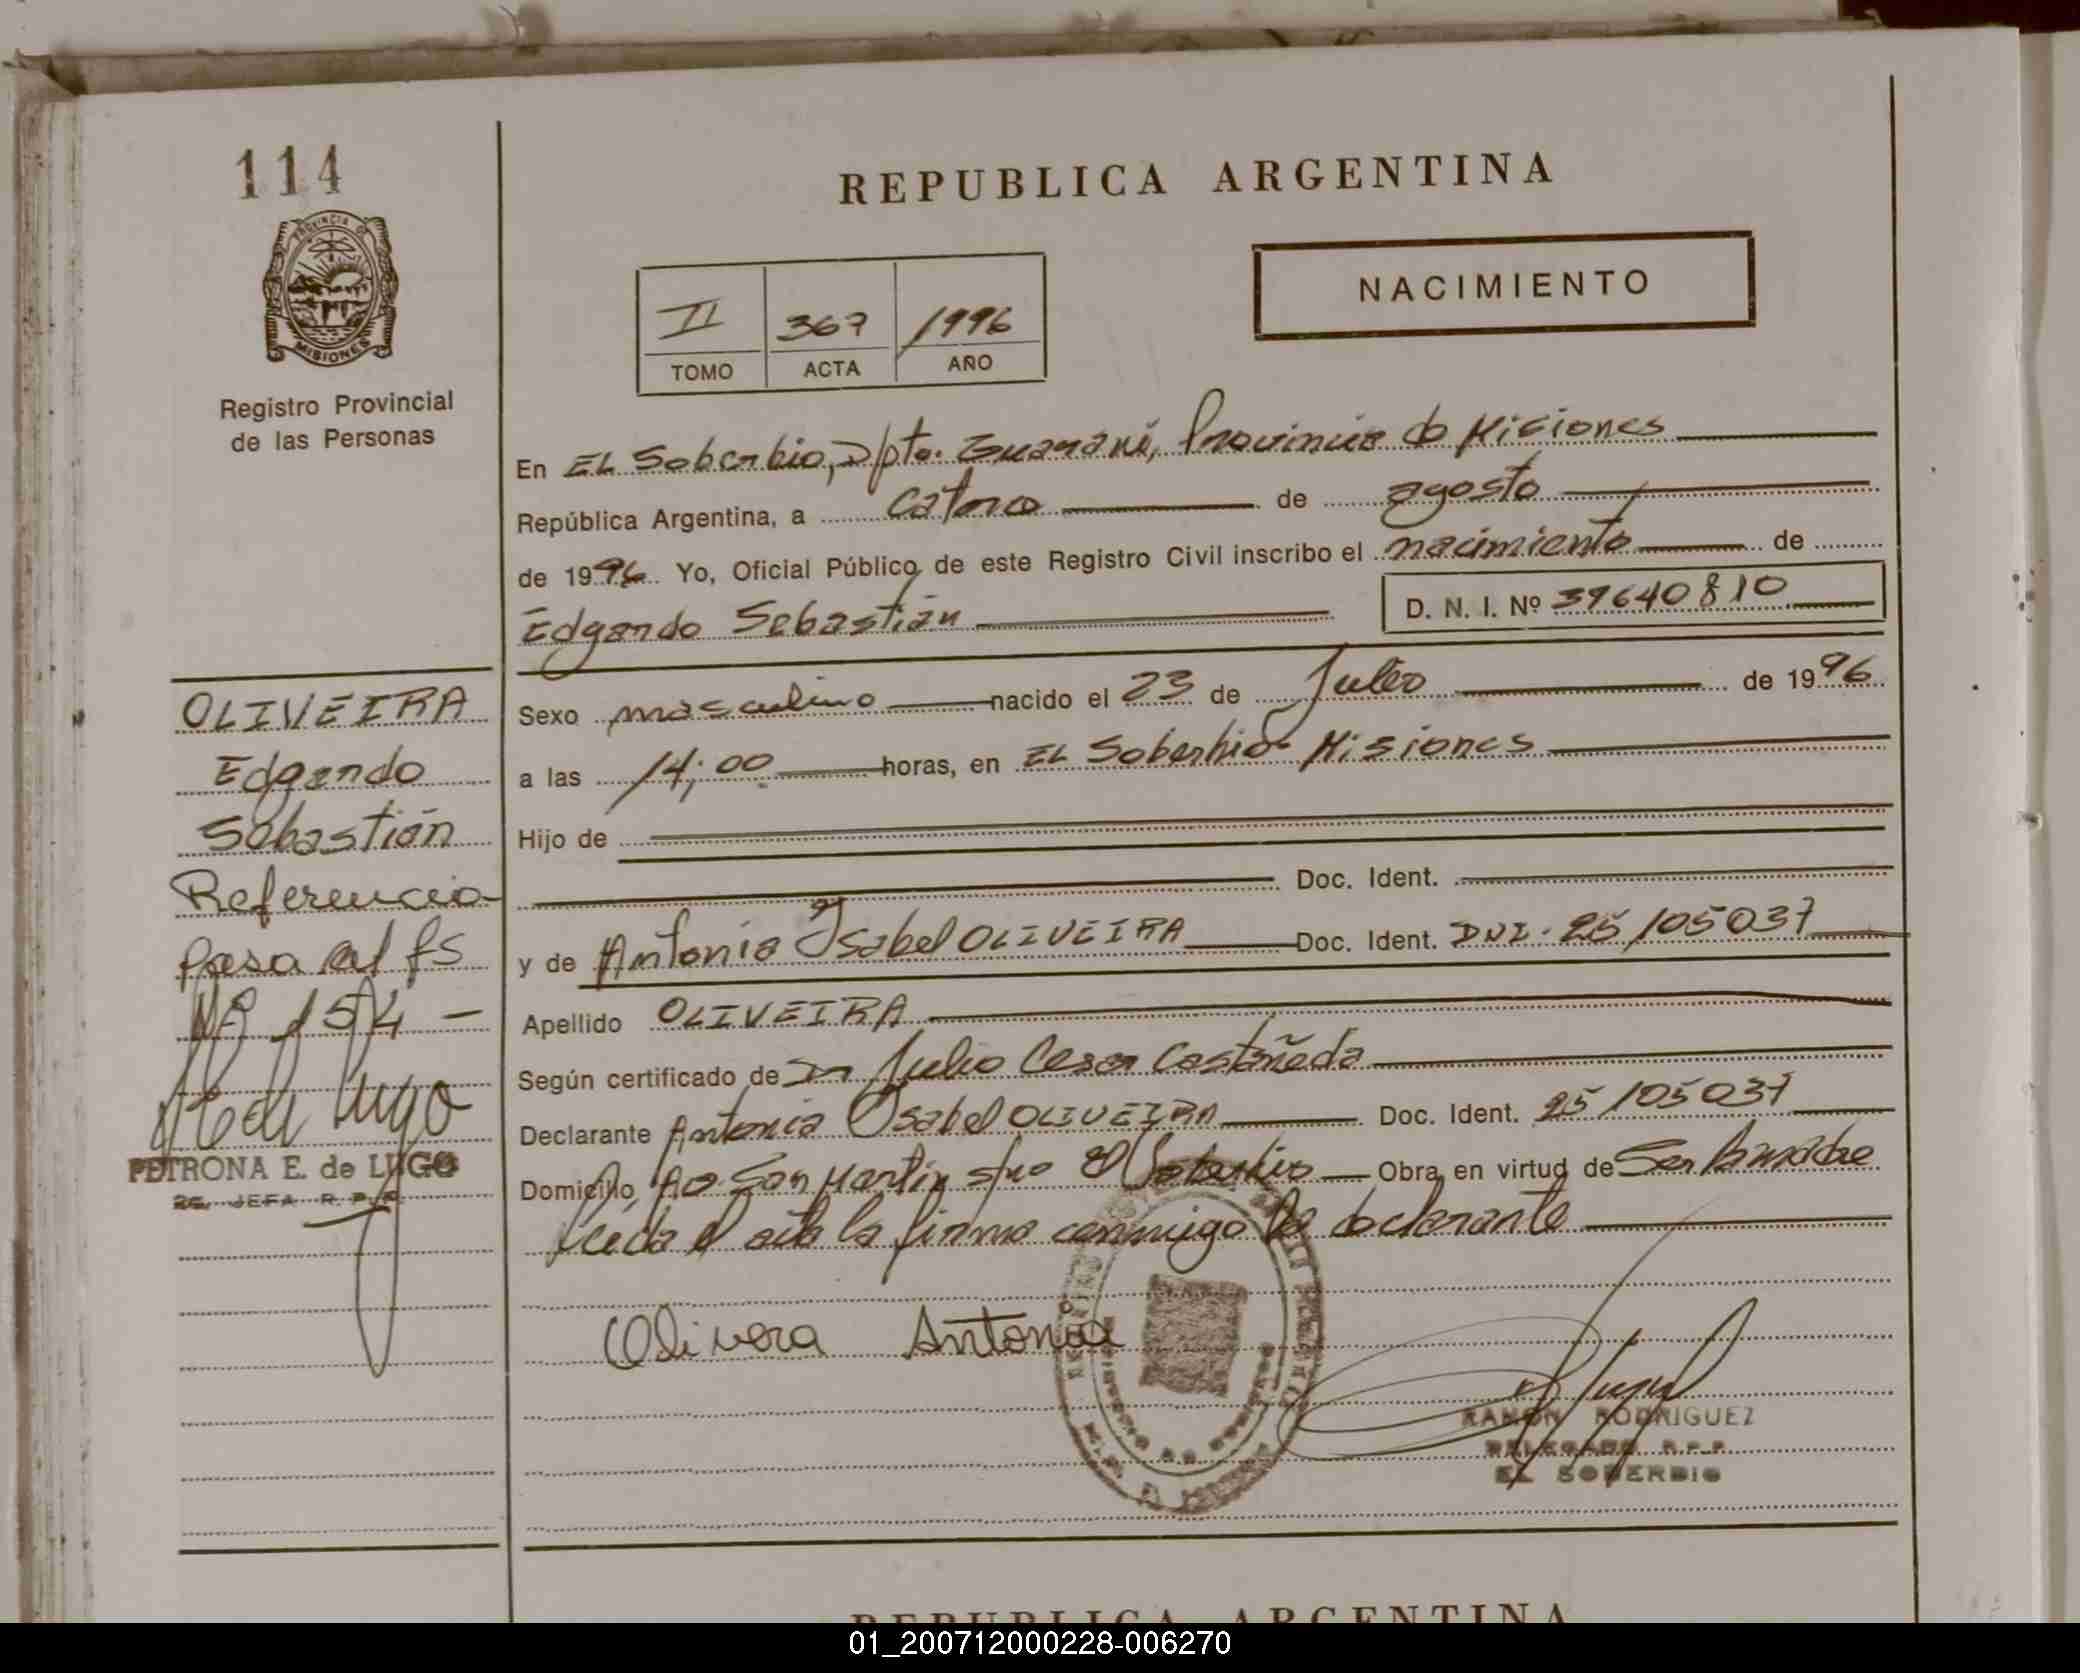 114
REPUBLICA ARGENTINA
PROVINCIA DE
MISIONES
Registro Provincial
de las Personas
II 367 1996
TOMO ACTA AÑO
NACIMIENTO
En EL Soberbio, Dpto. Guaraní, Provincia de Misiones
República Argentina, a catorce de agosto
de 1996 Yo, Oficial Público de este Registro Civil inscribo el nacimiento de
Edgardo Sebastián D. N. I. Nº 39640810
OLIVEIRA
Edgardo
Sebastián
Referencia
pasa al fs
Nº 154 -
PETRONA E. de LUGO
2E. JEFA R. P. P.
Sexo masculino nacido el 23 de Julio de 1996
a las 14;00 horas, en EL Soberbio- Misiones
Hijo de
Doc. Ident.
y de Antonia Isabel OLIVEIRA Doc. Ident. DNI. 25105037
Apellido OLIVEIRA
Según certificado de Dr Julio Cesar Castañeda
Declarante Antonia Isabel OLIVEIRA Doc. Ident. 25105037
Domicilio San Martín s/no El Soberbio Obra en virtud de Ser la madre
Leída el acta la firma conmigo la declarante
Olivera Antonia
RAMON RODRIGUEZ
DELEGADO R.P.P.
EL SOBERBIO
REPUBLICA ARGENTINA
01_200712000228-006270